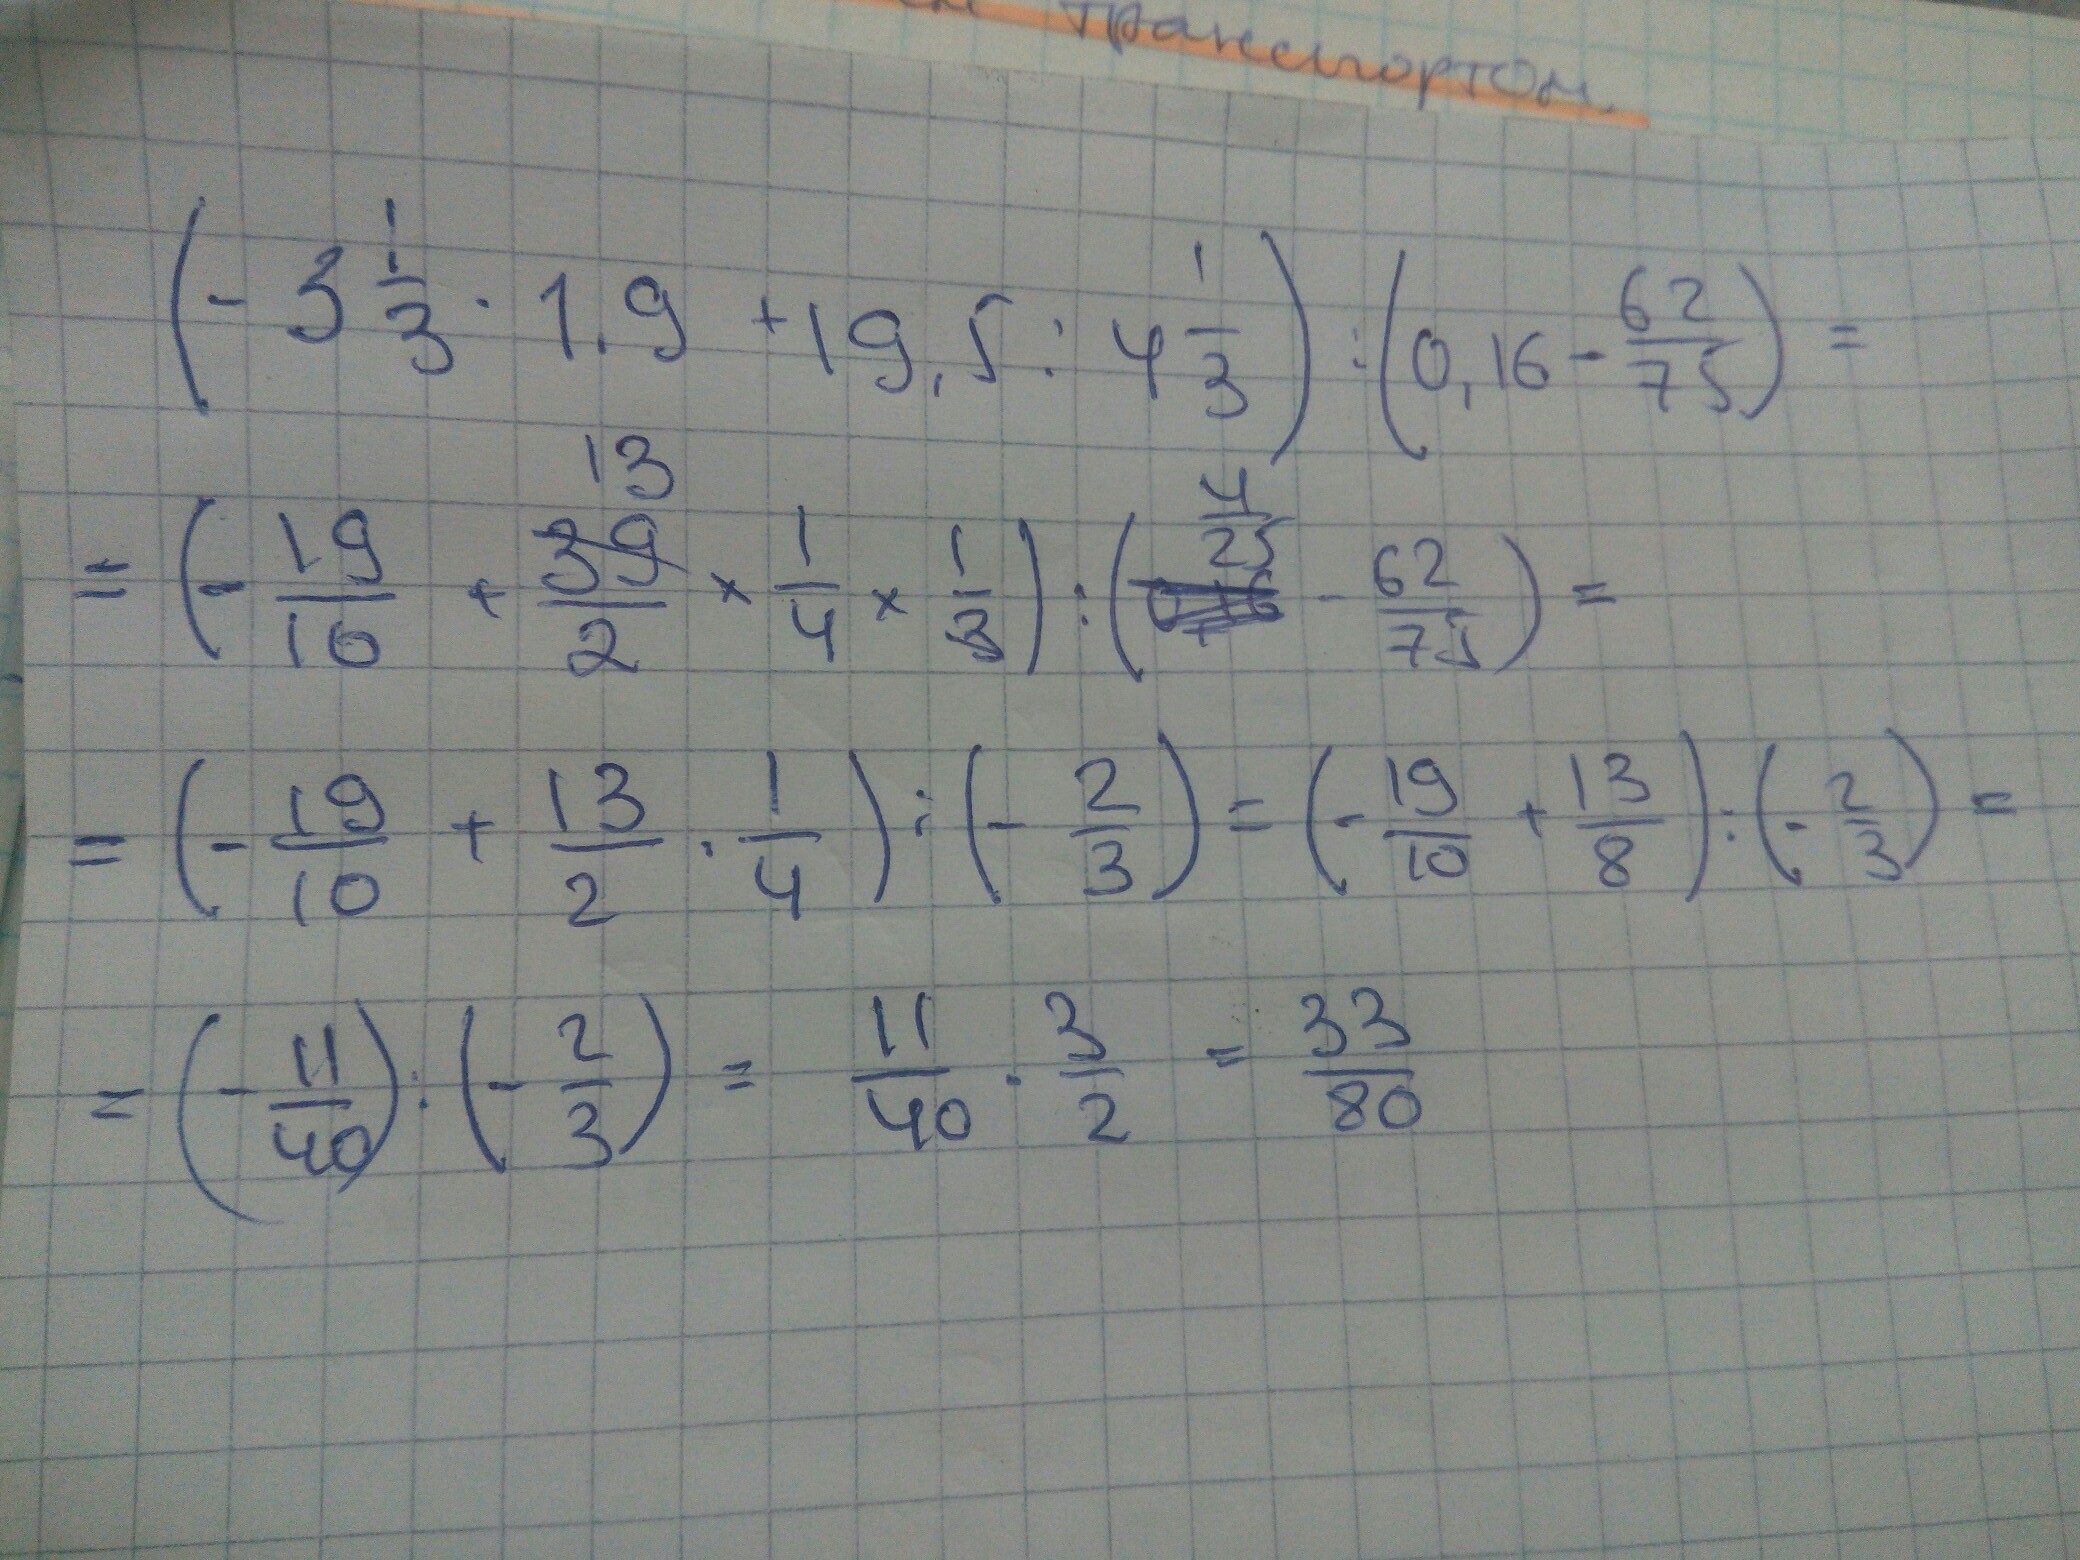 транспортом.
(- 3 1/3 · 1.9 + 19,5 : 4 1/3) : (0,16 - 62/75) =
= (- 19/10 + 13 39/2 × 1/4 × 1/3) : (4/25 - 62/75) =
= (- 19/10 + 13/2 · 1/4) : (- 2/3) = (- 19/10 + 13/8) : (- 2/3) =
= (- 11/40) : (- 2/3) = 11/40 · 3/2 = 33/80